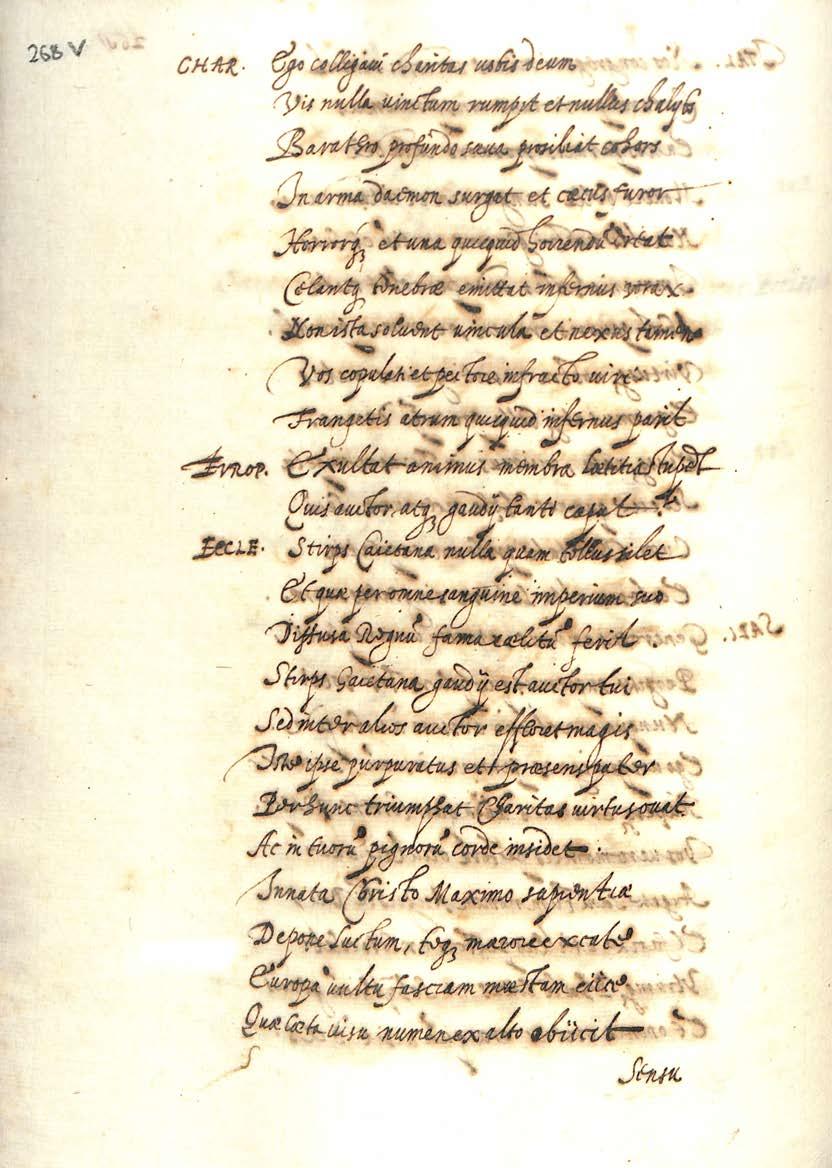 268 V
CHAR. Ego colligaui charitas uobis deum
Vis nulla uinctum rumpet et nullus chalybs
Barathro profundo saeua prosiliat cohors
In arma daemon surgat et caecus furor
Horrorq; et una quicquid horrendū
Celantq; tenebrae emittat infernus vorax
Non ista soluent uincula et nexus tamen
Vos copulati et pectore infracto uires
Frangetis atrum quicquid infernus parit
EVROP. Exultat animus membra laetitia stupēt
Quis auctor atq; gaudij tanti caput
ECCLE. Stirps Caietana nulla quam tellus silet
Et quae per omne sanguine imperium suo
Diffusa Regnū fama caelitū ferit
Stirps Gaetana gaudij est auctor tui
Sed inter alios auctor effloret magis
Iste ipse purpuratus et praesens pater
Per hunc triumphat Charitas uirtus ouat
Ac in tuorū pignorū corde insidet.
Innata Christo Maximo sapientiae
Depone luctum, teq; maerore excute
Europa uultu fasciam maestam eiice
Quae laeta uisu numen ex alto abiicit
Sensu